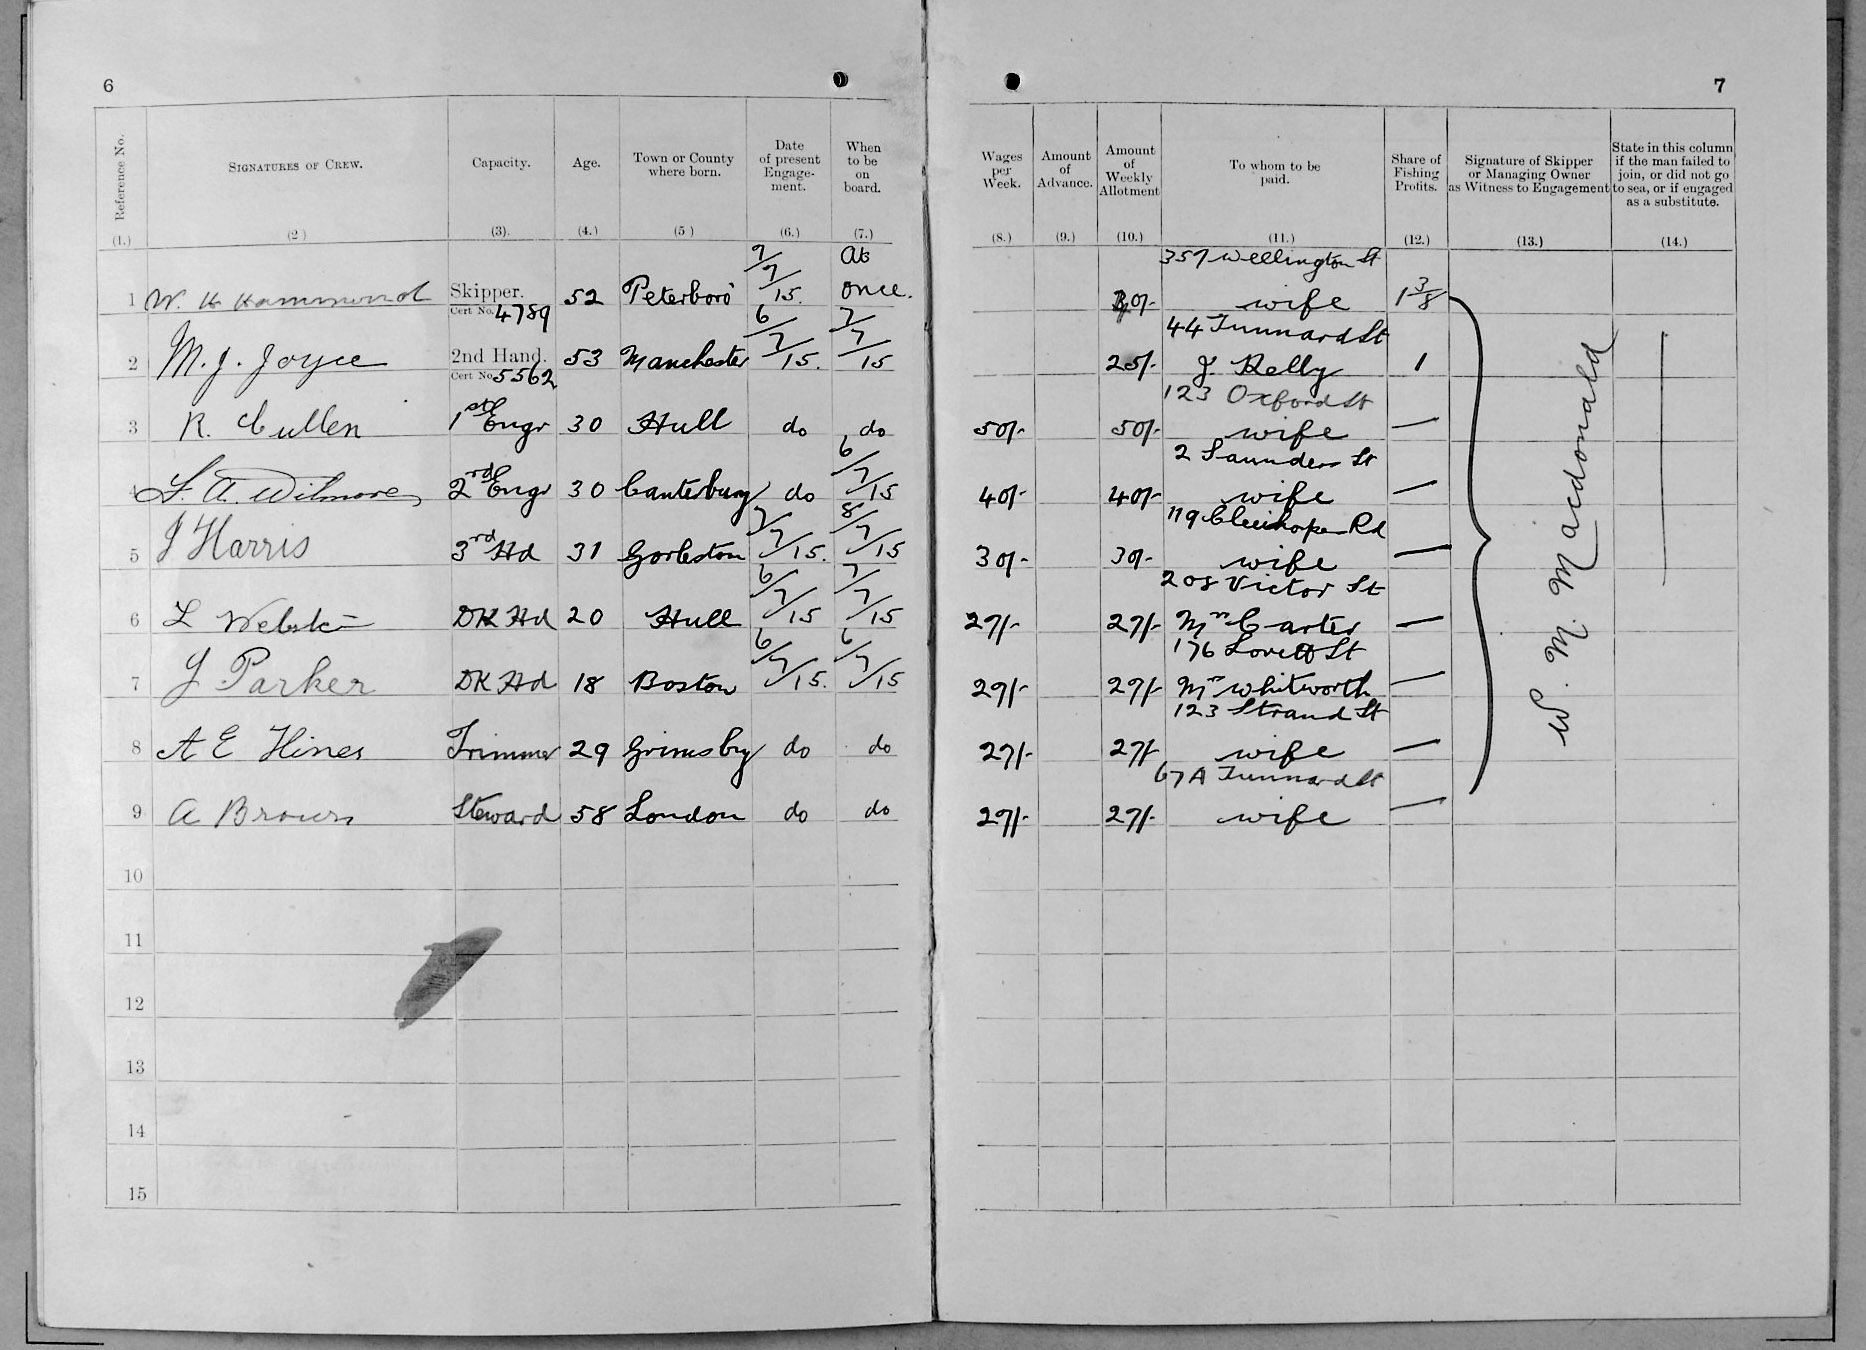 6
Reference No. SIGNATURES OF CREW. Capacity. Age. Town or County where born. Date of present Engagement. When to be on board.
(1.) (2) (3). (4.) (5) (6.) (7.)
1 W. H Hammond Skipper. Cert No. 4789 52 Peterboro' 7/7/15. At once.
2 M. J. Joyce 2nd Hand. Cert No 5562 53 Manchester 6/7/15. 7/7/15
3 R. Cullen 1st Engr 30 Hull do do
4 2nd Engr 30 Canterbury do 6/7/15
5 J Harris 3rd Hd 31 Gorleston 7/7/15. 8/7/15
6 L Webster DK Hd 20 Hull 6/7/15 7/7/15
7 J Parker DK Hd 18 Boston 6/7/15. 6/7/15
8 A E Hines Trimmer 29 Grimsby do do
9 A Brown Steward 58 London do do
10
11
12
13
14
15
7
Wages per Week. Amount of Advance. Amount of Weekly Allotment To whom to be paid. Share of Fishing Profits. Signature of Skipper or Managing Owner as Witness to Engagement State in this column if the man failed to join, or did not go to sea, or if engaged as a substitute.
(8.) (9.) (10.) (11.) (12.) (13.) (14.)
357 Wellington St
wife 1 3/8
44 Tunnard St
25/- J. Kelly 1
123 Oxford St
50/- 50/- wife —
2 Saunders St
40/- 40/- wife —
119 Rd
30/- 30/- wife —
208 Victor St
27/- 27/- Mrs Carter —
176 Lovett St
27/- 27/- Mrs Whitworth —
123 Strand St
27/- 27/- wife —
67A Tunnard St
27/- 27/- wife —
W. M. Macdonald